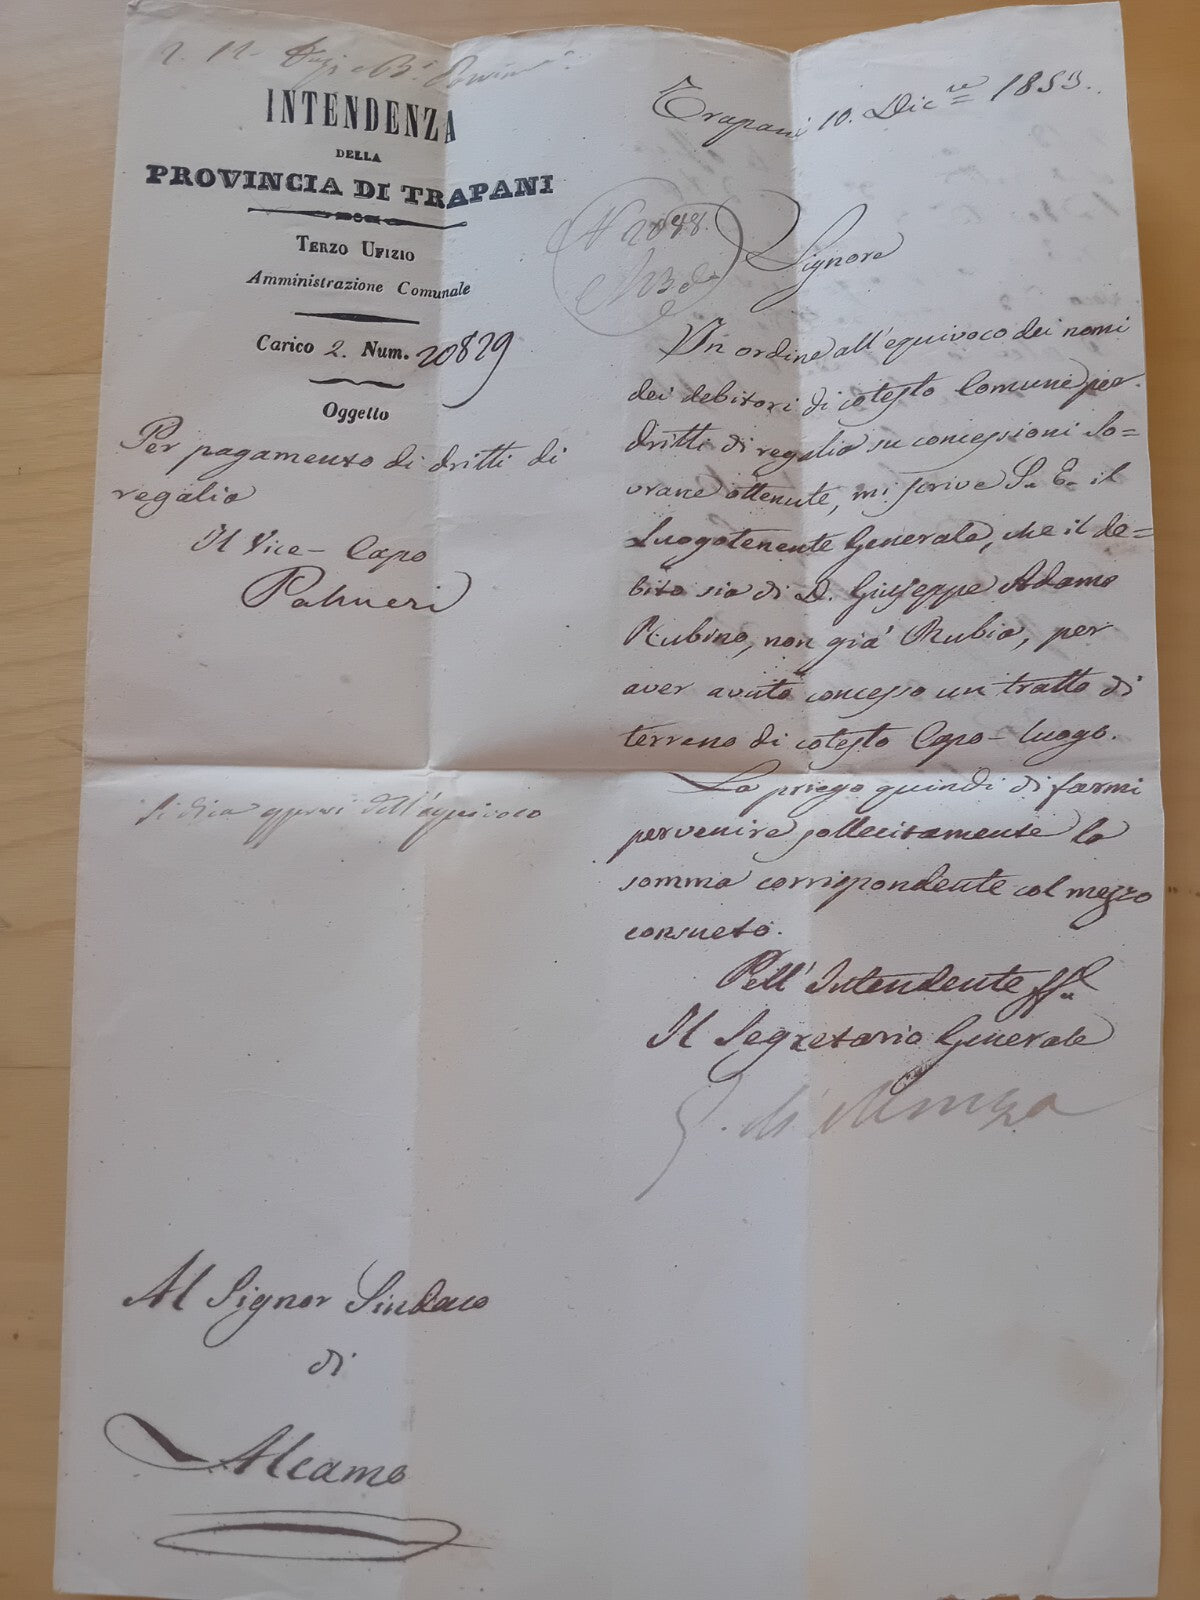 INTENDENZA
DELLA
PROVINCIA DI TRAPANI
Terzo Ufizio
Amministrazione Comunale
Carico 2. Num. 20829
Oggetto
Per pagamento di dritti di
regalia
Il Vice-Capo
Palmeri
Si dica dell'equivoco
Al Signor Sindaco
di
Alcamo
Trapani 10. Dic.re 1853.
N 2088.
Signore
In ordine all'equivoco dei nomi
dei debitori di cotesto Comune per
dritti di regalia su concessioni So=
vrane ottenute, mi scrive S. E. il
Luogotenente Generale, che il de=
bito sia di D. Giuseppe Adamo
Rubino, non già Rubia, per
aver avuto concesso un tratto di
terreno di cotesto Capo-luogo.
La priego quindi di farmi
pervenire sollecitamente la
somma corrispondente col mezzo
consueto.
Pell' Intendente ff.
Il Segretario Generale